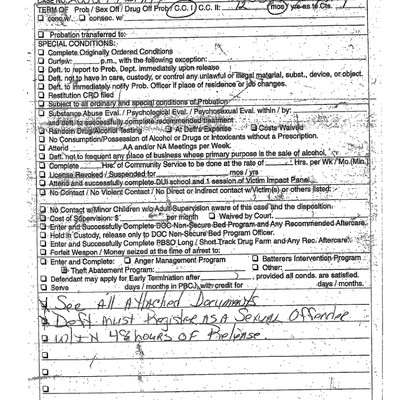 TERM OF Prob / Sex Off / Drug Off Prob / C.C. I / C.C. II: 12 mos / yrs as to Cts. 1
conc w/ consec. w/
Probation transferred to:
SPECIAL CONDITIONS:
Complete Originally Ordered Conditions
Curfew: p.m., with the following exception:
Deft. to report to Prob. Dept. immediately upon release
Deft. not to have in care, custody, or control any unlawful or illegal material, subst., device, or object.
Deft. to immediately notify Prob. Officer if place of residence or job changes.
Restitution CRO filed
Subject to all ordinary and special conditions of Probation
Substance Abuse Eval. / Psychological Eval. / Psychosexual Eval. within / by:
and deft. to successfully complete recommended treatment
Random Drug/Alcohol Testing At Deft's Expense Costs Waived
No Consumption/Possession of Alcohol or Drugs or Intoxicants without a Prescription.
Attend AA/or NA Meetings per Week:
Deft. not to frequent any place of business whose primary purpose is the sale of alcohol.
Complete Hrs. of Community Service to be done at the rate of Hrs. per Wk / Mo. (Min.)
License Revoked / Suspended for mos / yrs
Attend and successfully complete DUI school and 1 session of Victim Impact Panel.
No Contact / No Violent Contact / No Direct or indirect contact w/Victim(s) or others listed:
No Contact w/Minor Children w/o Adult Supervision aware of this case and the disposition.
Cost of Supervision: $ per month Waived by Court.
Enter and Successfully Complete DOC Non-Secure Bed Program and Any Recommended Aftercare.
Hold in Custody, release only to DOC Non-Secure Bed Program Officer.
Enter and Successfully Complete PBSO Long / Short Track Drug Farm and Any Rec. Aftercare.
Forfeit Weapon / Money seized at the time of arrest to:
Enter and Complete Anger Management Program Batterers Intervention Program
Theft Abatement Program: Other:
Defendant may apply for Early Termination after , provided all conds. are satisfied.
Serve days / months in PBCJ, with credit for days / months.
See All Attached Documents
Deft must Register as a Sexual Offender
W/I N 48 hours of Release.